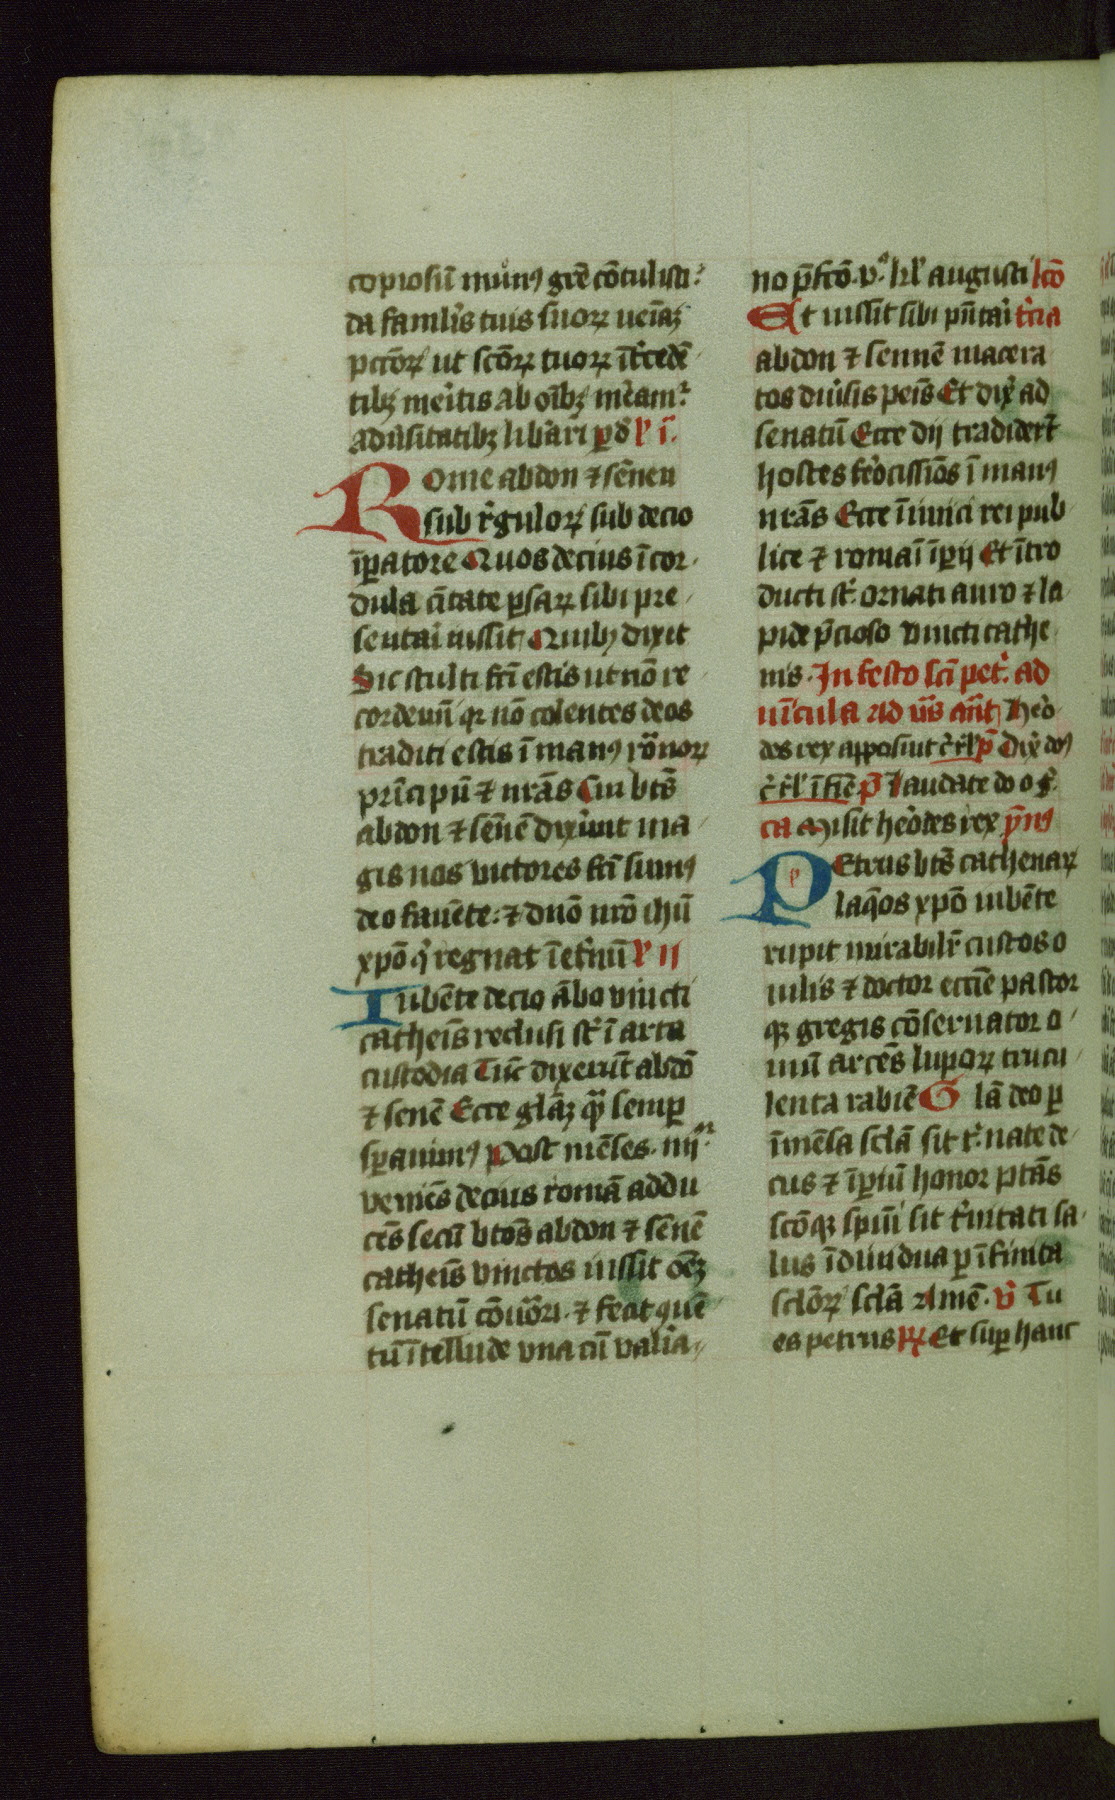 copiosū mūnꝯ grē cōtulisti:
da famlis tuis suoꝝ ueīaꝫ
pctōꝝ ut scōꝝ tuoꝝ ītcedē
tibꝫ meītis ab oībꝫ mēam
adūsitatibꝫ libari ꝑ d l' i.
Rome abdon ⁊ sēnen
sub rguloꝝ sub decio
īꝑatore Quos decius ī cor
dula ciītate ꝑsaꝝ sibi pre
sentai iussit Quibꝫ dixit
Sic stulti fcī estis ut nō re
cordemī qꝛ nō colentes deos
traditi estis ī manꝯ rōnoꝝ
prīcipū ⁊ nrās Cui btī
abdon ⁊ sēnē dixūnt ma
gis nos victores fcī sumꝯ
deo fauēte: ⁊ dnō nrō ihū
xpō q regnat ī etnū l' ii
Iubēte decio ābo vincti
catheīs reclusi st ī arta
custodia Tūc dixerūt abdō
⁊ senē Ecce glāꝫ quā semꝑ
sꝑauimꝯ Post mēses iiij
veniēs decius romā addu
cēs secū btōs abdon ⁊ sēnē
catheīs vinctos iussit oēꝫ
senatū cōuōri ⁊ fecit quē
tū ītellude vna cū valīa
no pfcō v kl' augusti lcō
Et iussit sibi pñtai tcia
abdon ⁊ sennē macera
tos diūsis peīs Et dix ad
senatū Ecce dij tradidert
hostes feocissīos ī manꝯ
nrās Ecce īimici rei pub
lice ⁊ romāi īꝑij Et ītro
ducti st ornati auro ⁊ la
pide pcioso vincti cathe
nis In festo scī pet ad
uīcula ad vs añt Heo
des rex apposuit
Laudate do
ca Misit heodes rex ymꝯ
Petrus btūs cathenaꝝ
laqos xpō iubēte
rupit mirabilr custos o
uilis ⁊ doctor eccīe pastor
qꝫ gregis cōseruator o
uiū arcēs lupoꝝ trucu
lenta rabiē Glā deo ꝑ
īmēsa sclā sit tnate de
cus ⁊ īꝑiū honor ptās
scōqꝫ spiui sit tnitati sa
lus īdiuidua ꝑ īfinita
sclōꝝ sclā Amē v Tu
es petrus ꝶ Et suꝑ hanc